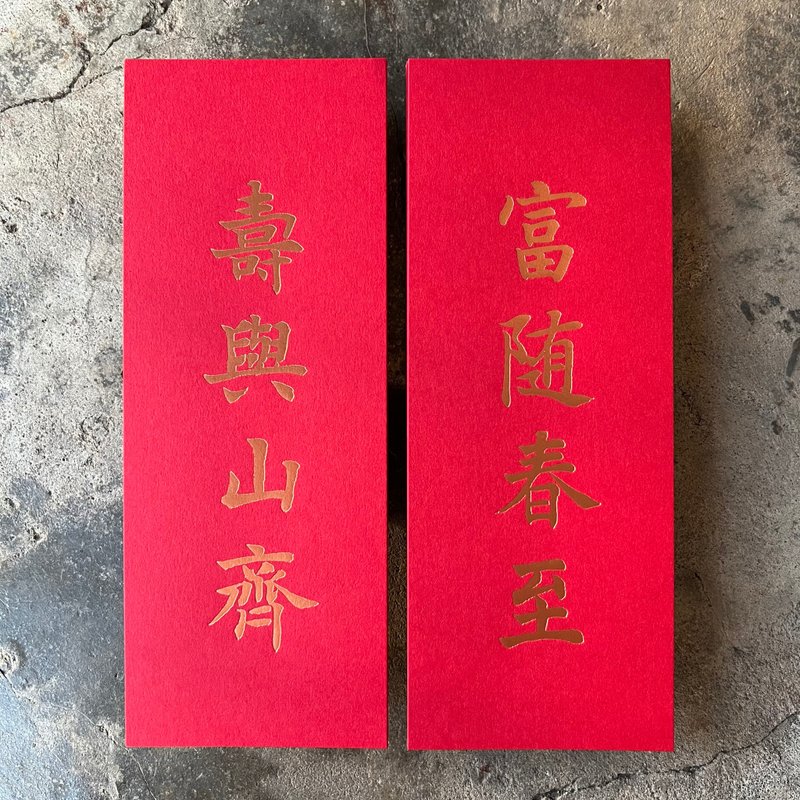 富随春至
壽與山齊